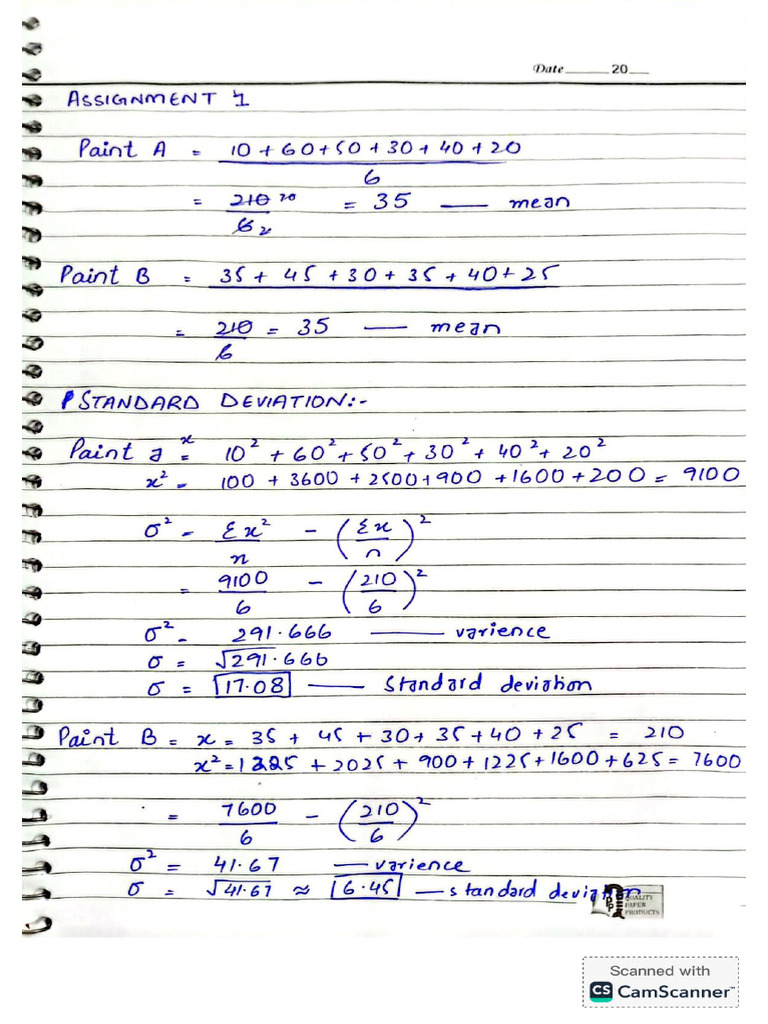 Date 20
ASSIGNMENT 1
Paint A = 10 + 60 + 50 + 30 + 40 + 20
6
= 210 70 = 35 — mean
6 2
Paint B = 35 + 45 + 30 + 35 + 40 + 25
= 210 = 35 — mean
6
STANDARD DEVIATION:-
Paint a x = 10² + 60² + 50² + 30² + 40² + 20²
x² = 100 + 3600 + 2500 + 900 + 1600 + 200 = 9100
σ² = Σx² - (Σx)²
n n
= 9100 - (210)²
6 6
σ² = 291.666 — varience
σ = √291.666
σ = 17.08 — Standard deviation
Paint B = x = 35 + 45 + 30 + 35 + 40 + 25 = 210
x² = 1225 + 2025 + 900 + 1225 + 1600 + 625 = 7600
= 7600 - (210)²
6 6
σ² = 41.67 — varience
σ = √41.67 ≈ 6.45 — standard deviation
QUALITY
PAPER
PRODUCTS
Scanned with
CS CamScanner